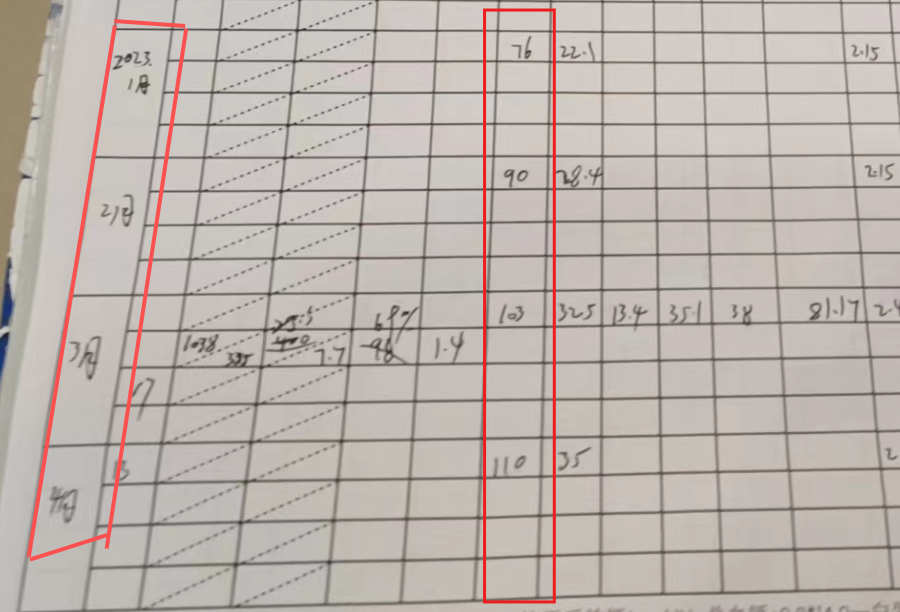 2023.
1月
76 22.1 2.15
2月
90 28.4 2.15
3月
103 32.5 13.4 35.1 38 81.17 2.4
69%
1038 335 7.7 98 1.4
17
13
110 35 2
4月